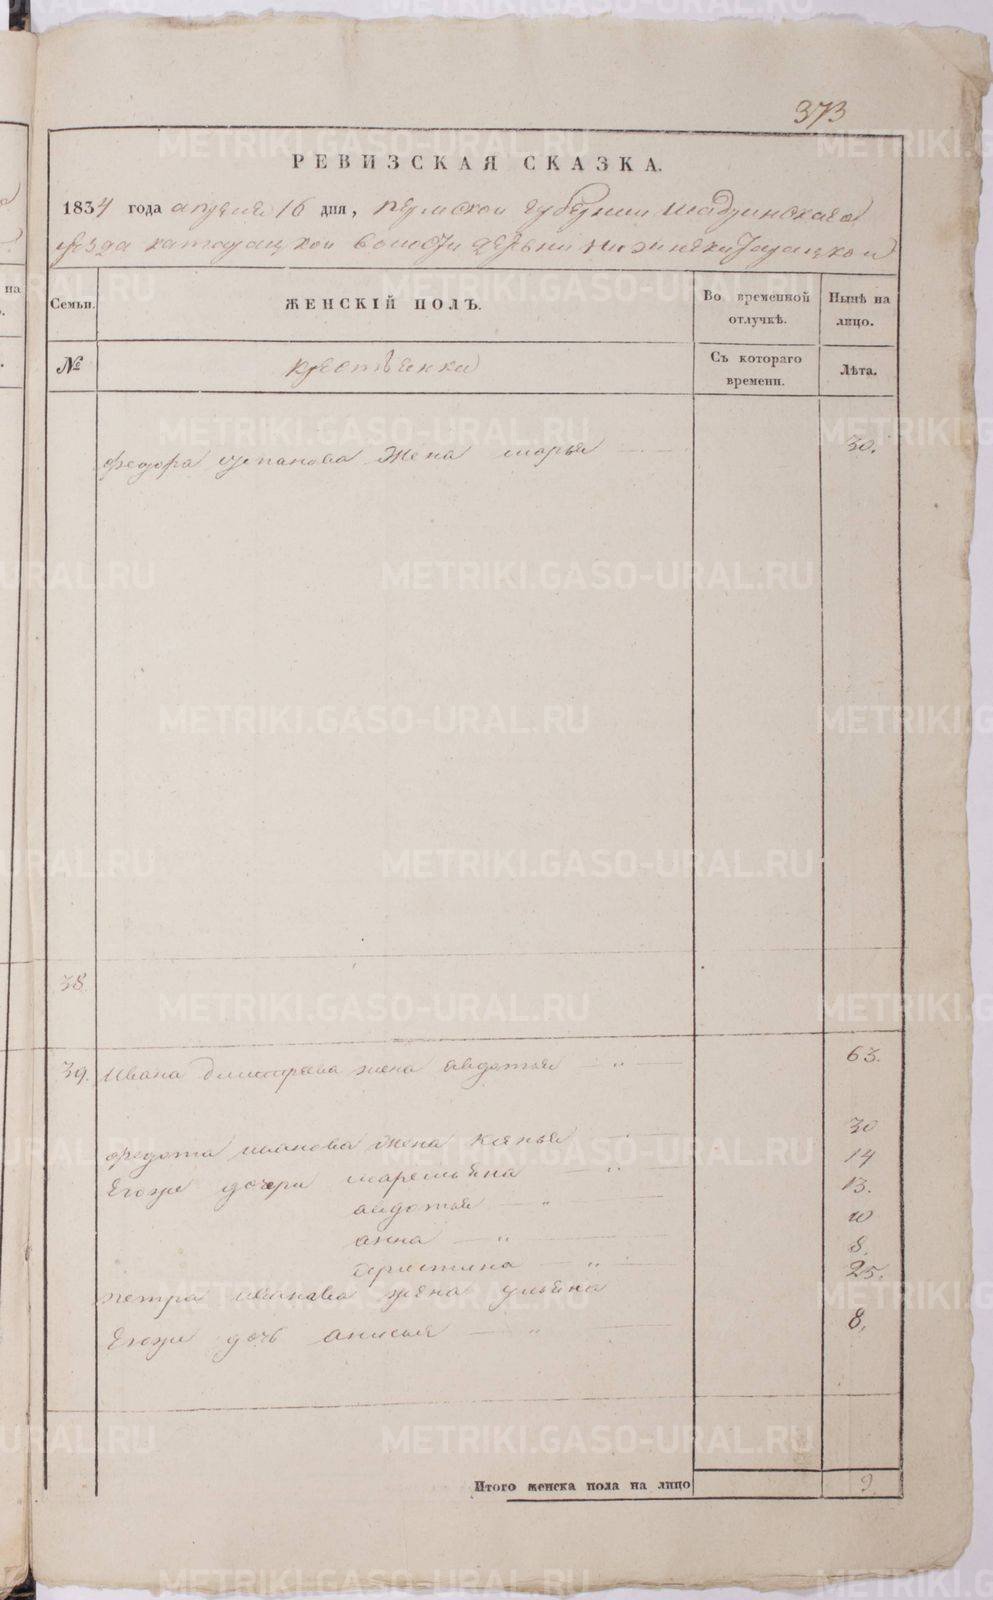 373
РЕВИЗСКАЯ СКАЗКА.
1834 года апреля 16 дня, пермской губернии шадринскаго
уезда катайской волости деревни
на
Семьи. ЖЕНСКІЙ ПОЛЪ. Во временной отлучкѣ. Нынѣ на лицо.
№ крестьянки Съ котораго времени. Лѣта.
федора степанова жена марья 30.
38.
39. Ивана дмитрева жена авдотья — „ — 63.
федота иванова жена 30
Егожъ дочери 14
авдотья — „ — 13.
анна — „ — 10
христина — „ — 8.
петра иванова жена ульяна 25.
Егожъ дочь анисья — „ — 8.
Итого женска пола на лицо 9
METRIKI.GASO-URAL.RU